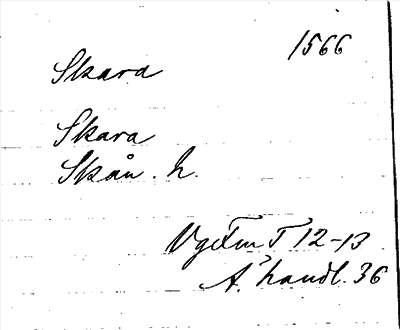 1566
Skara
Skara
Skån. h.
Vgtfm T 12-13
A. handl. 36